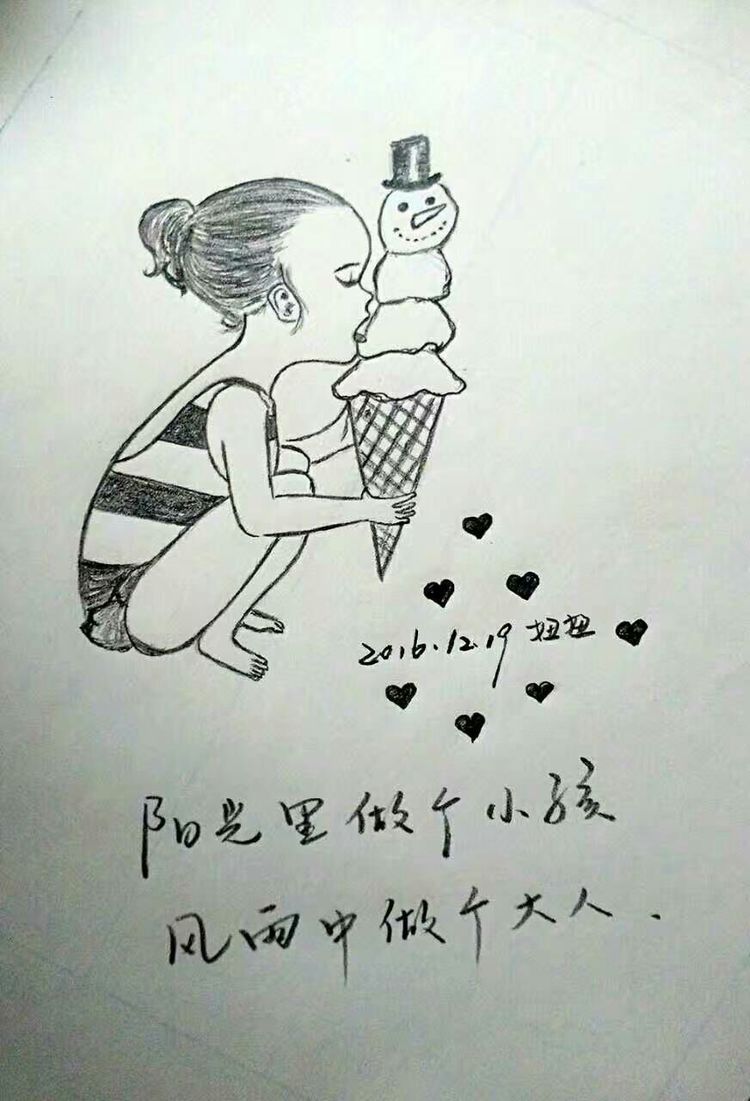 2016.12.19 妞妞
阳光里做个小孩
风雨中做个大人.